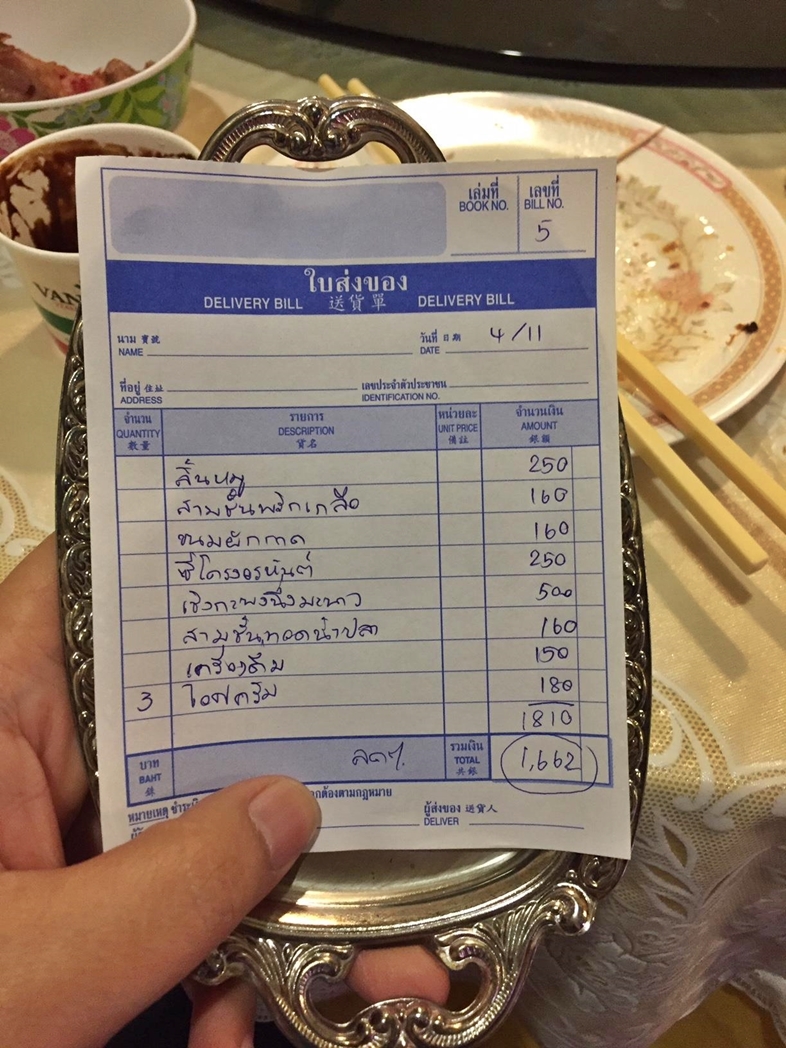 เล่มที่ เลขที่
BOOK NO. BILL NO.
5
ใบส่งของ
DELIVERY BILL 送貨單 DELIVERY BILL
นาม 寶號 วันที่ 日期 4/11
NAME DATE
ที่อยู่ 住址 เลขประจำตัวประชาชน
ADDRESS IDENTIFICATION NO.
จำนวน รายการ หน่วยละ จำนวนเงิน
QUANTITY DESCRIPTION UNIT PRICE AMOUNT
數量 貨名 備註 銀額
ลิ้นหมู 250
สามชั้นพริกเกลือ 160
ขนมผักกาด 160
ซี่โครงอรหันต์ 250
เชิงกะพงนึ่งมะนาว 500
สามชั้นทอดน้ำปลา 160
เครื่องดื่ม 150
3 ไอศครีม 180
1810
บาท รวมเงิน
BAHT ลด% TOTAL 1,662
銖 共銀
หมายเหตุ กต้องตามกฎหมาย
ผู้ส่งของ 送貨人
DELIVER
VAN